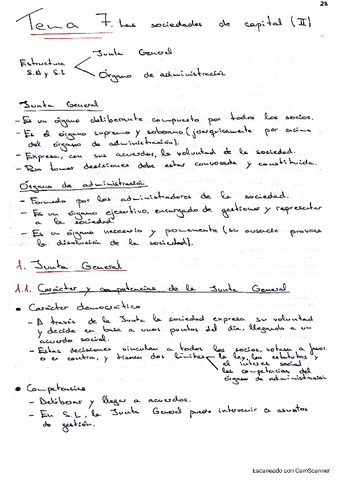 23
Tema 7. Las sociedades de capital (II)
Estructura
S.A y S.L
Junta General
Órgano de administración
Junta General
- Es un órgano deliberante compuesto por todos los socios.
- Es el órgano supremo y soberano (jerárquicamente por encima
del órgano de administración).
- Expresa, con sus acuerdos, la voluntad de la sociedad.
- Para tomar decisiones debe estar convocada y constituida.
Órgano de administración
- Formado por los administradores de la sociedad.
- Es un órgano ejecutivo, encargado de gestionar y representar
a la sociedad.
- Es un órgano necesario y permanente (su ausencia provoca
la disolución de la sociedad).
1. Junta General
1.1. Carácter y competencias de la Junta General
• Carácter democrático
- A través de la Junta la sociedad expresa su voluntad
y decide en base a unos puntos del día, llegando a un
acuerdo social.
- Estas decisiones vinculan a todos los socios, votasen a favor
o en contra, y tienen dos límites
la ley, los estatutos y
el interés social
las competencias del
órgano de administración
• Competencias
- Deliberar y llegar a acuerdos.
- En S.L, la Junta General puede intervenir en asuntos
de gestión.
Escaneado con CamScanner